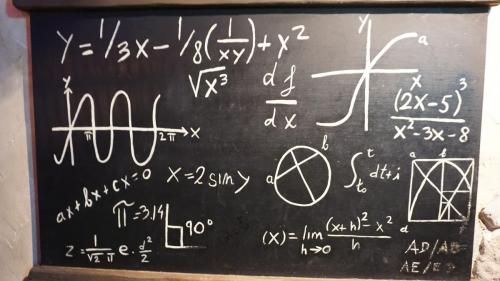 y = 1/3x - 1/8(1/xy) + x²
√x³
df/dx
y
a
x
(2x-5)³/x²-3x-8
y
π
2π
x
ax+bx+cx=0
x=2siny
a
b
∫ t t₀ dt+i
a
b
d
π=3.14
90°
z = 1/√2 π e · d²/2
(x) = lim h→0 (x+h)²-x²/h
AD/
AE/